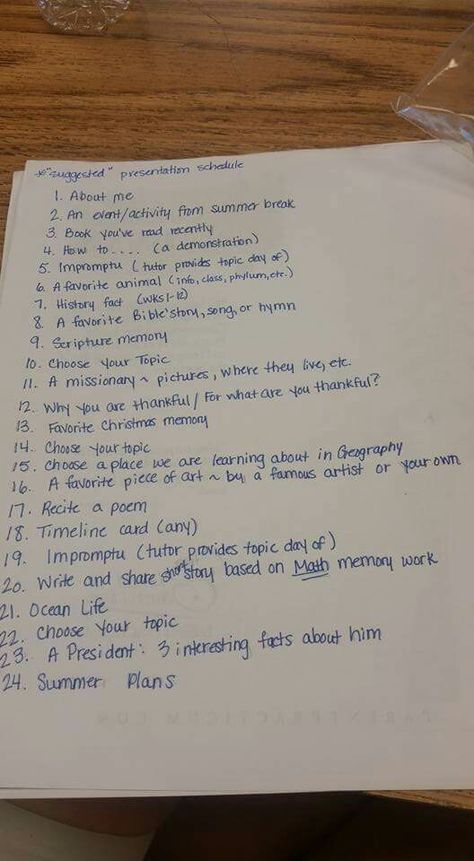 *"suggested" presentation schedule
1. About me
2. An event/activity from summer break
3. Book you've read recently
4. How to.... (a demonstration)
5. Impromptu (tutor provides topic day of)
6. A favorite animal (info, class, phylum, etc.)
7. History fact (wks 1-12)
8. A favorite Bible story, song, or hymn
9. Scripture memory
10. Choose Your Topic
11. A missionary ~ pictures, where they live, etc.
12. Why you are thankful / For what are you thankful?
13. Favorite Christmas memory
14. Choose your topic
15. Choose a place we are learning about in Geography
16. A favorite piece of art ~ by a famous artist or your own
17. Recite a poem
18. Timeline card (any)
19. Impromptu (tutor provides topic day of)
20. Write and share short story based on Math memory work
21. Ocean Life
22. Choose your topic
23. A President: 3 interesting facts about him
24. Summer Plans